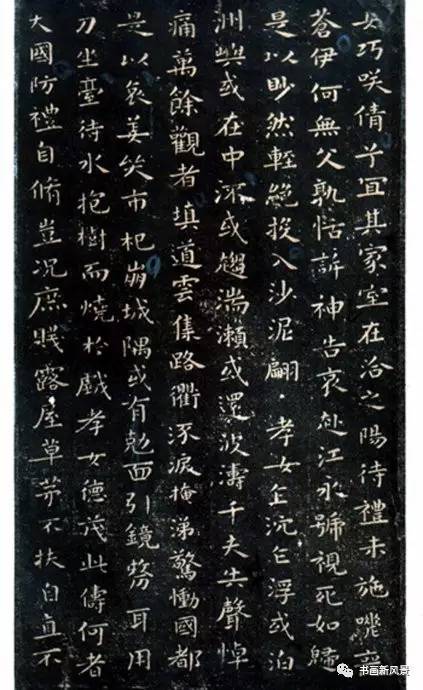 女巧咲倩子冝其家室在洽之陽待禮未施嗟喪
蒼伊何無父孰怙訴神告哀赴江永號視死如歸
是以眇然輕絶投入沙泥翩·孝女乍沉乍浮或泊
洲嶼或在中流或趨湍瀨或還波濤千夫失聲悼
痛萬餘觀者填道雲集路衢流淚掩涕驚慟國都
是以哀姜哭市杞崩城隅或有剋面引鏡剺耳用
刀坐臺待水抱樹而燒於戲孝女德茂此儔何者
大國防禮自脩豈況庶賤露屋草茅不扶自直不
书画新风景